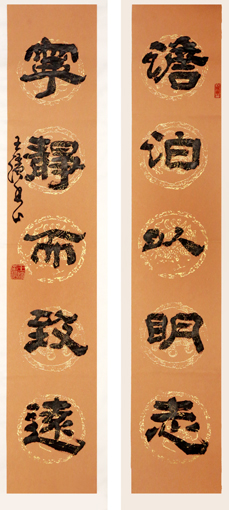 詹泊以明志
寧靜而致遠